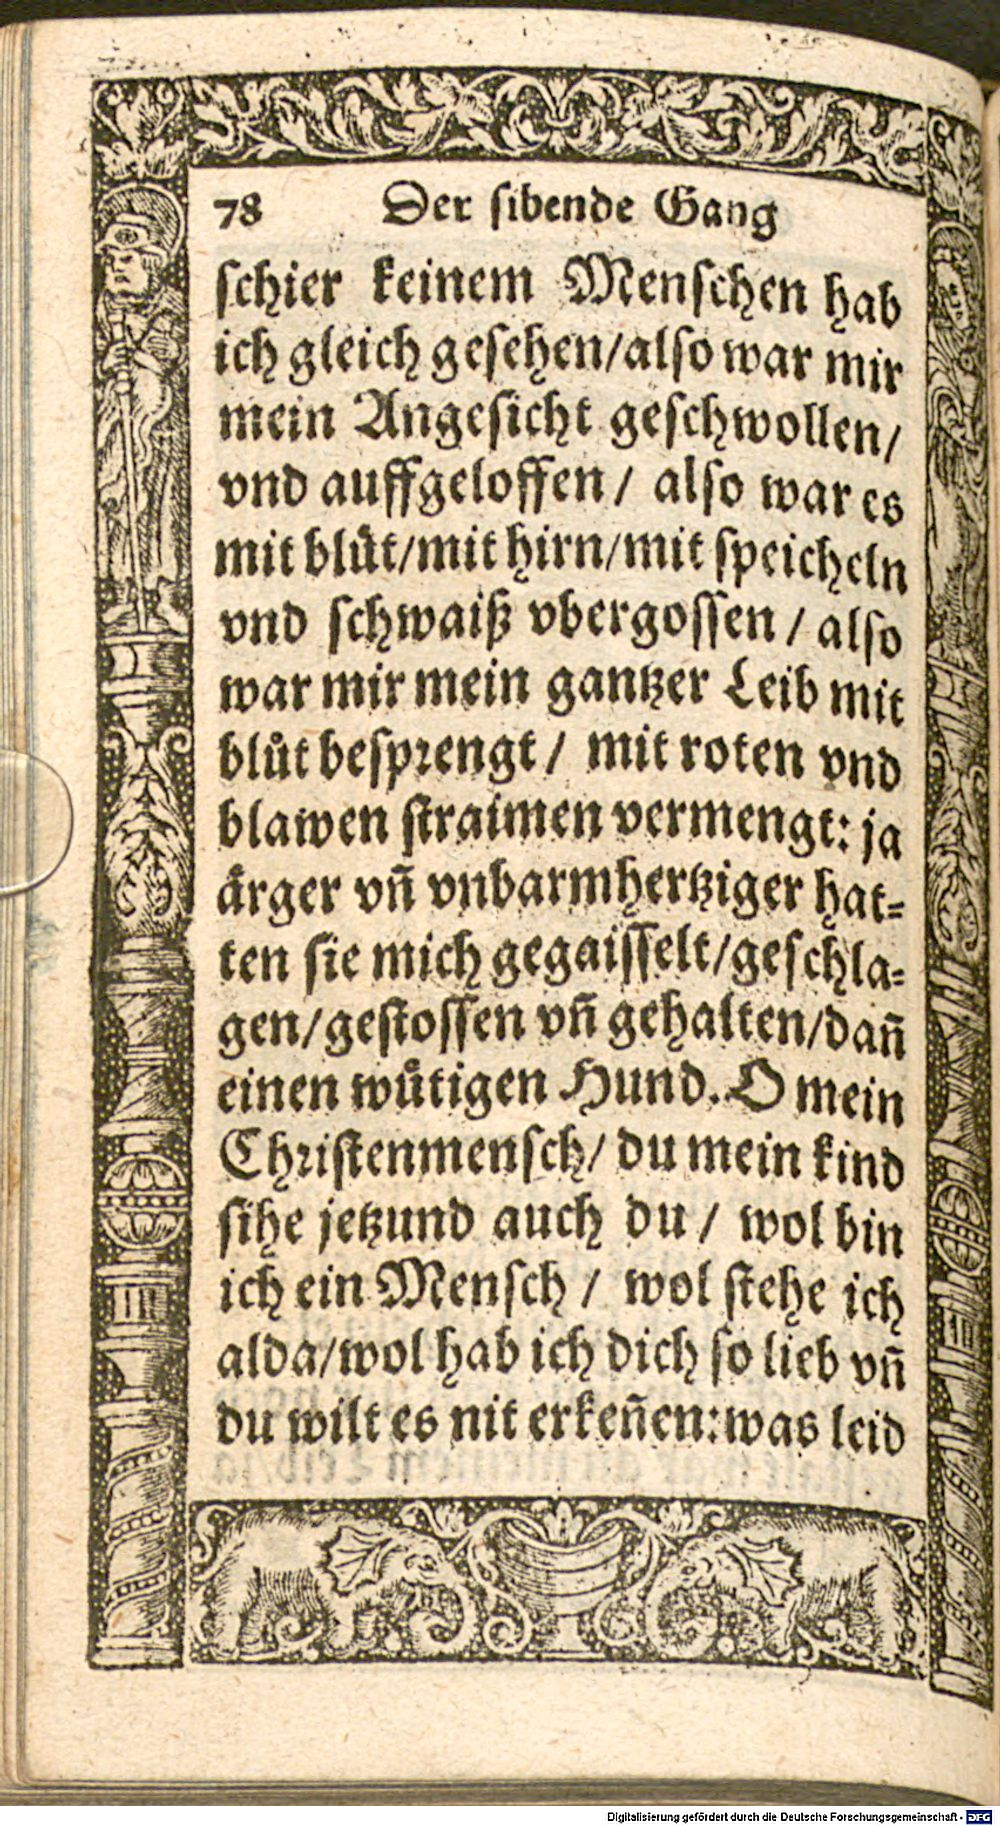 78 Der sibende Gang
schier keinem Menschen hab
ich gleich gesehen/also war mir
mein Angesicht geschwollen/
vnd auffgeloffen/ also war es
mit blůt/mit hirn/mit speicheln
vnd schwaiß vbergossen/also
war mir mein gantzer Leib mit
blůt besprengt/ mit roten vnd
blawen straimen vermengt: ja
aͤrger vñ vnbarmhertziger hat⸗
ten sie mich gegaisselt/geschla⸗
gen/gestossen vñ gehalten/dañ
einen wuͤtigen Hund. O mein
Christenmensch/ du mein kind
sihe jetzund auch du/ wol bin
ich ein Mensch/ wol stehe ich
alda/wol hab ich dich so lieb vñ
du wilt es nit erkeñen: was leid
Digitalisierung gefördert durch die Deutsche Forschungsgemeinschaft - DFG